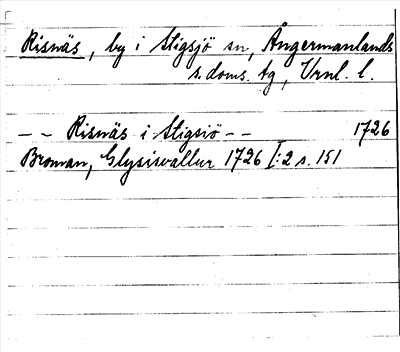 Risnäs, by i Stigsjö sn, Ångermanlands
s. doms. tg, Vrnl. l.
- - Risnäs i Stigsiö - - 1726
Broman, Glysisvallur 1726 I:2 s. 151